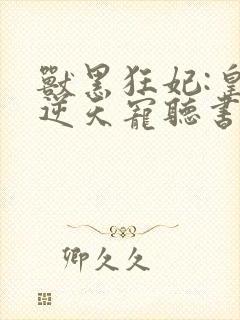 獸黑狂妃:皇
逆天寵聽書
卿久久